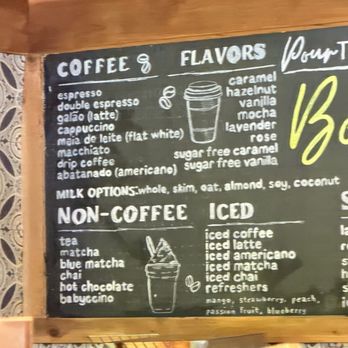 COFFEE
espresso
double espresso
galão (latte)
cappuccino
meia de leite (flat white)
macchiato
drip coffee
abatanado (americano)
FLAVORS
caramel
hazelnut
vanilla
mocha
lavender
rose
sugar free caramel
sugar free vanilla
Pour
MILK OPTIONS: whole, skim, oat, almond, soy, coconut
NON-COFFEE
tea
matcha
blue matcha
chai
hot chocolate
babyccino
ICED
iced coffee
iced latte
iced americano
iced matcha
iced chai
refreshers
mango, strawberry, peach,
passion fruit, blueberry